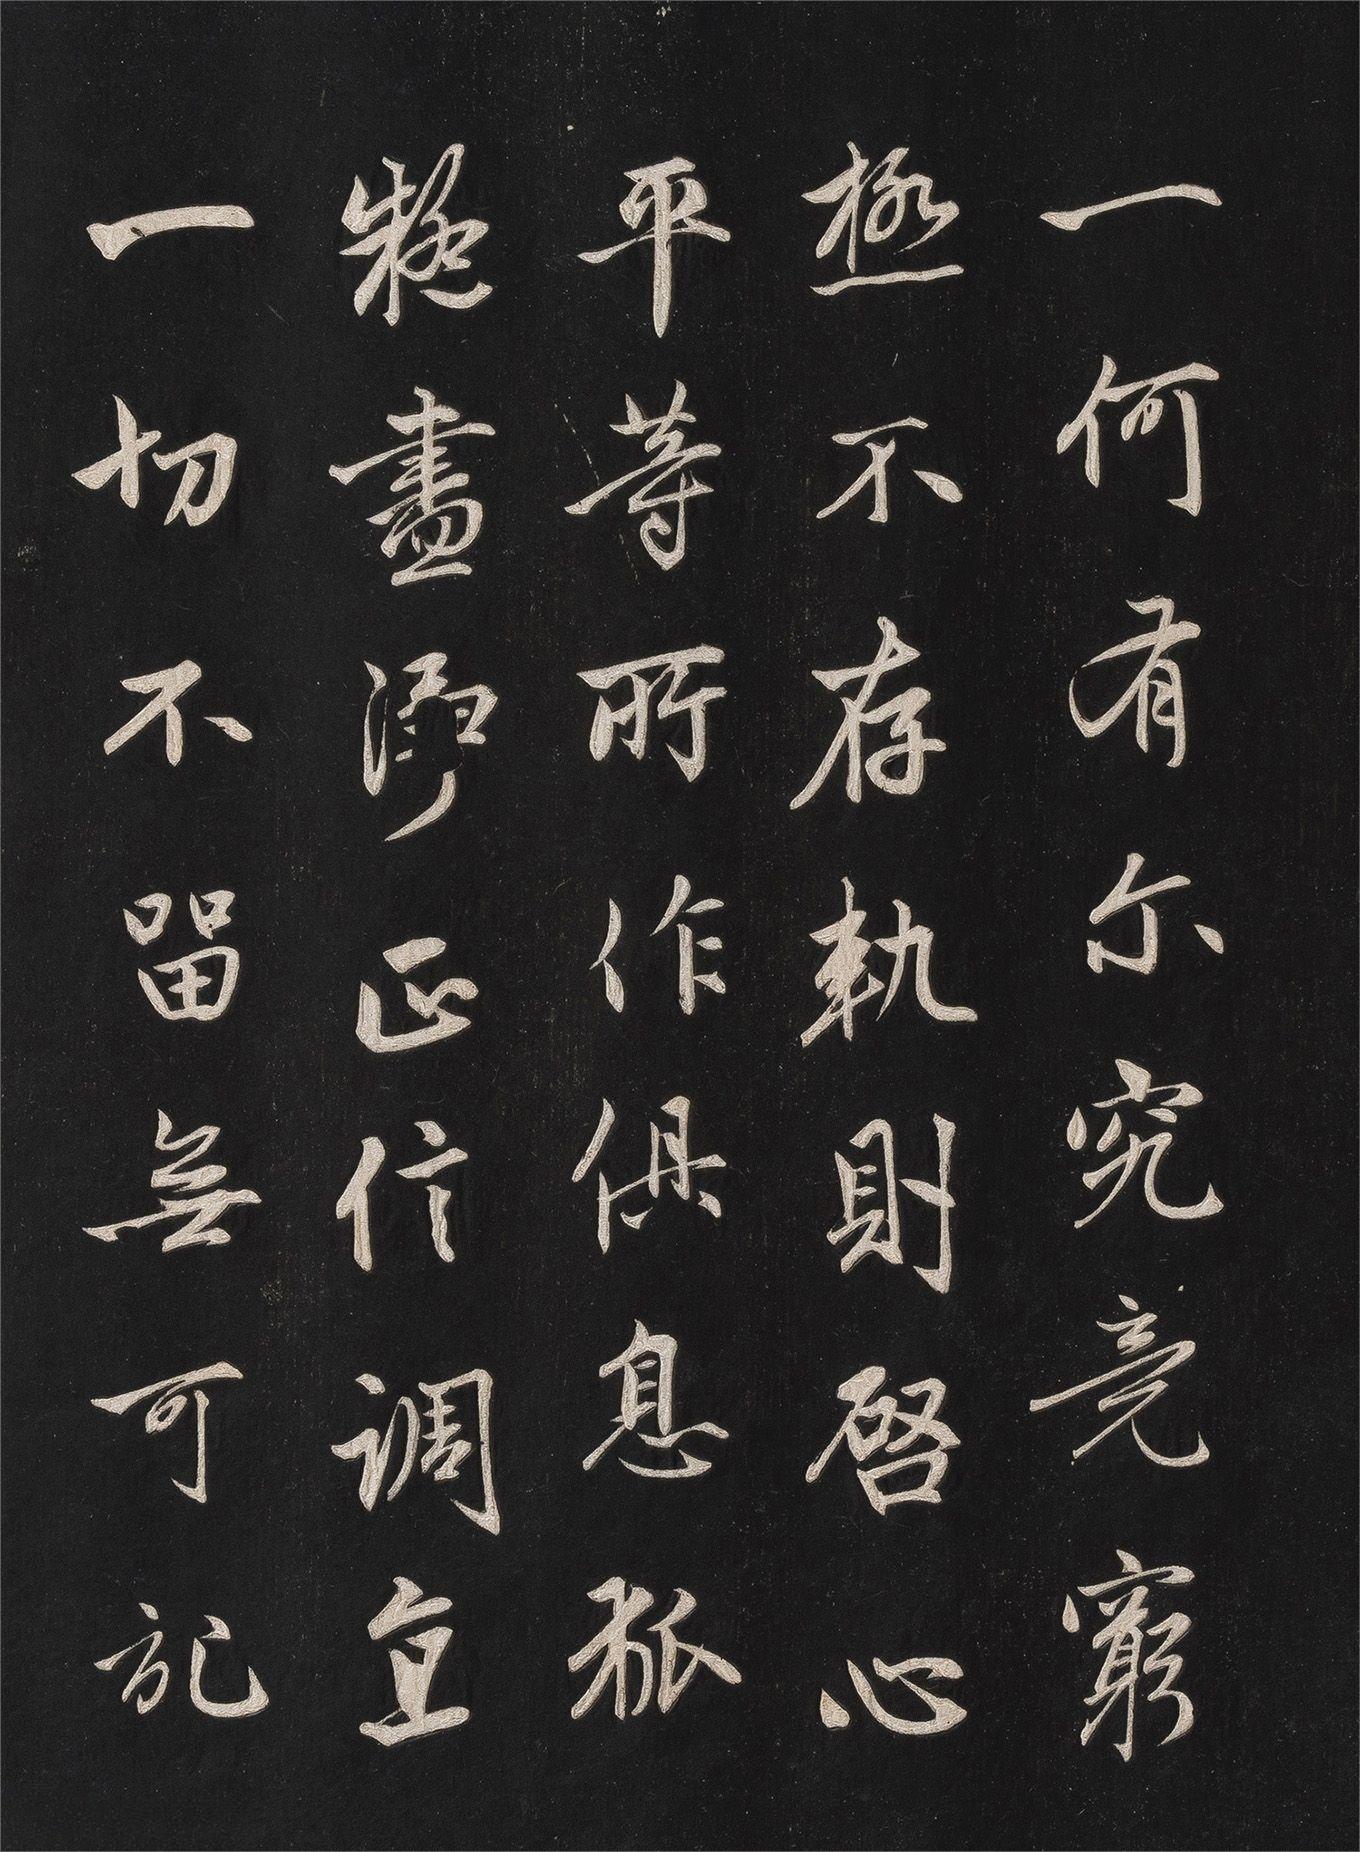 一何有尔究竟窮
極不存軌則啓心
平等所作俱息狐
疑盡淨正信調直
一切不留無可記